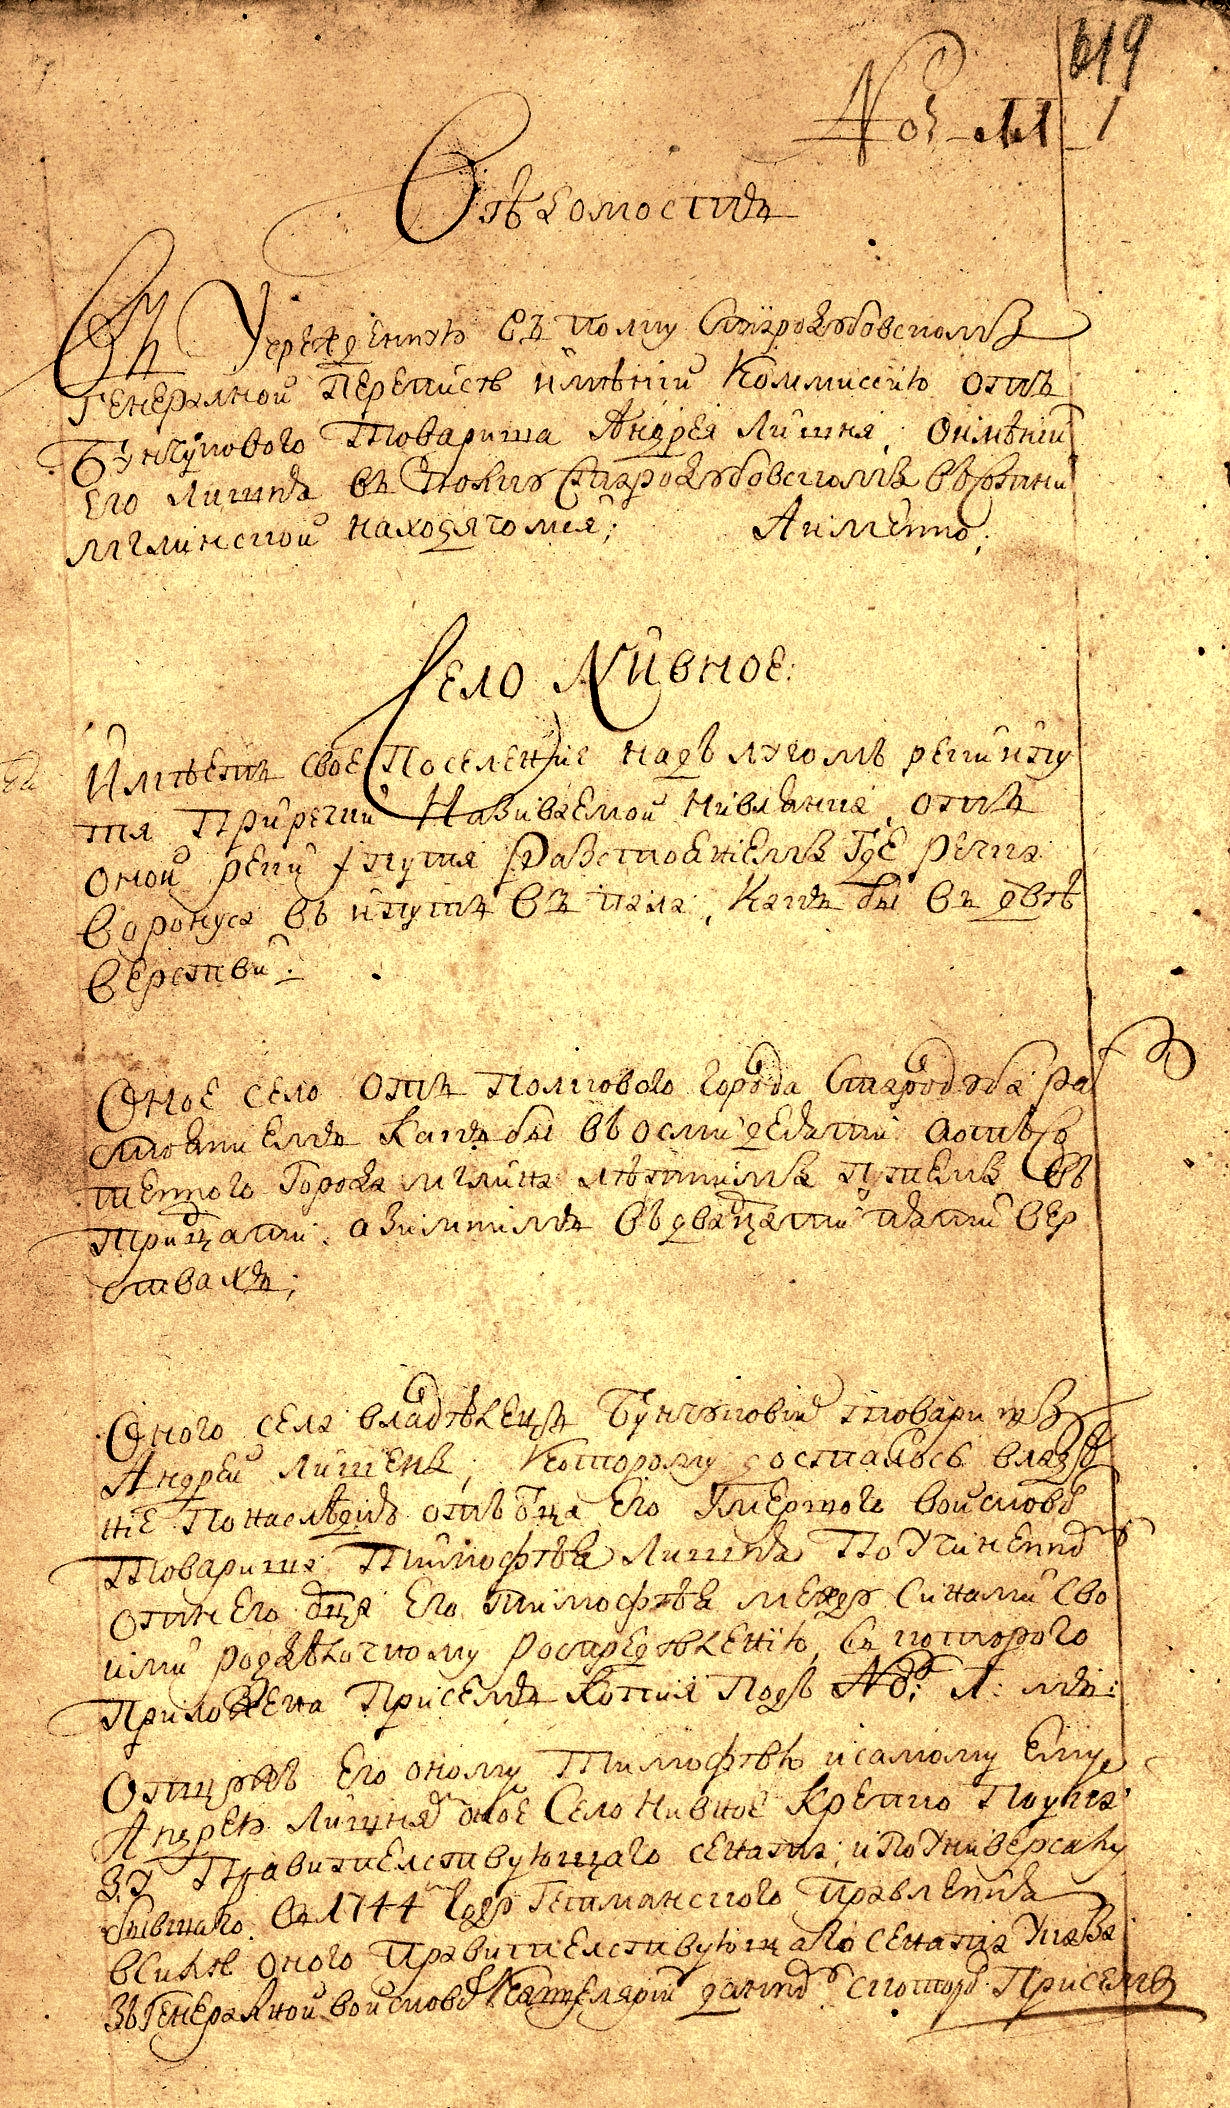 619
№ 11 1
Вѣдомость
Въ Учрежденную въ полку Стародубовскомъ
Генералной переписѣ имѣній Коммисѣю отъ
Бунчукового Товариша Андрея Лишня, о имѣній
его Лишня въ полку Стародубовскомъ в сотни
мглинской находячомся; А имѣнно;
Село Нивное:
Имѣетъ свое поселеніе надъ лугомъ реки ипу
тя при речки називаемой Нивлянка, отъ
оной реки ипутя разстояніемъ где речка
воронуса въ ипуть впала, какъ бы въ двѣ
верстви.
Оное село отъ полкового города Стародуба ра
стояниемъ какъ бы въ осмидесяти а отъ со
тенного города мглина лѣтнимъ путемъ въ
тридцати, а зимнимъ въ двадцати пяти вер
ствахъ;
Оного села владѣлецъ Бунчуковій товаришъ
Андрей Лишень, которому досталось владѣ
ніе по наслѣдию отъ отца его умершого войсковго
товариша Тимофѣя Лишня по учиненному
отъ его отца его Тимофѣя между синами сво
ими раздѣлочному роспредѣленію, с которого
приложена при семъ копия подъ №: 1: мъ:
Отцу его оному Тимофѣю и самому ему
Андрею Лишня оное село Нивное крепко по ука
зу правителствующаго сената, и по универсалу
бывшаго въ 1744 году Гетманского правления
в силѣ оного правителствующаго сената указа
зъ Генералной войсковой канцелярий данному с котор. при семъ